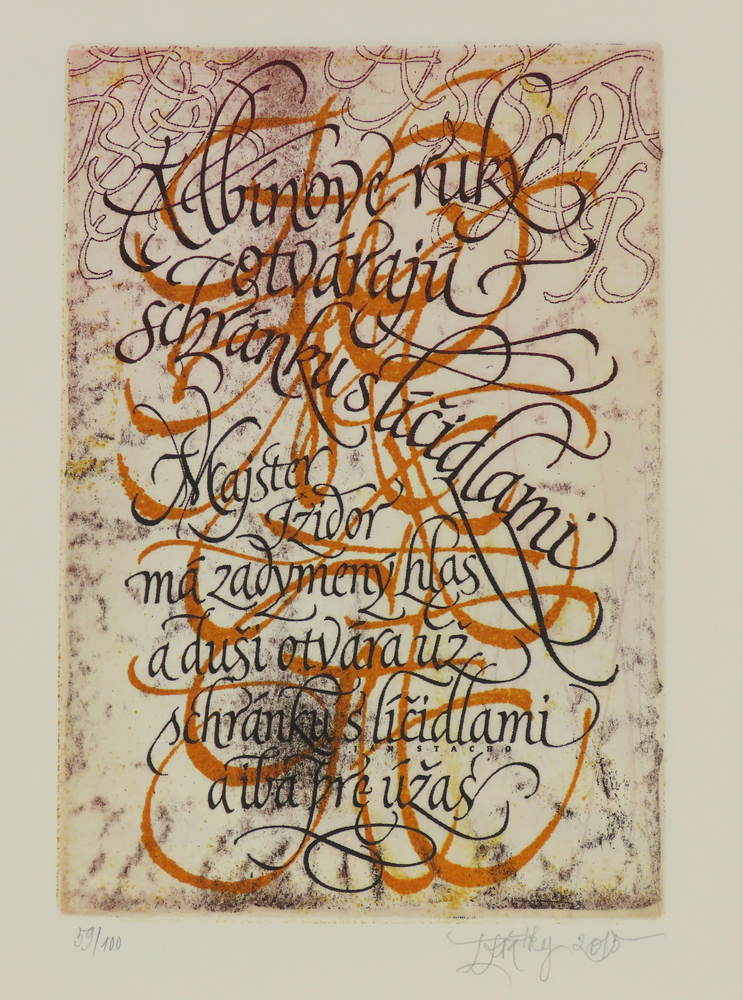 Albínove ruky
otvárajú
schránku s líčidlami
Majster
Izidor
má zadymený hlas
a duši otvára už
schránku s líčidlami
a iba pre úžas
JÁN STACHO
59/100
2015